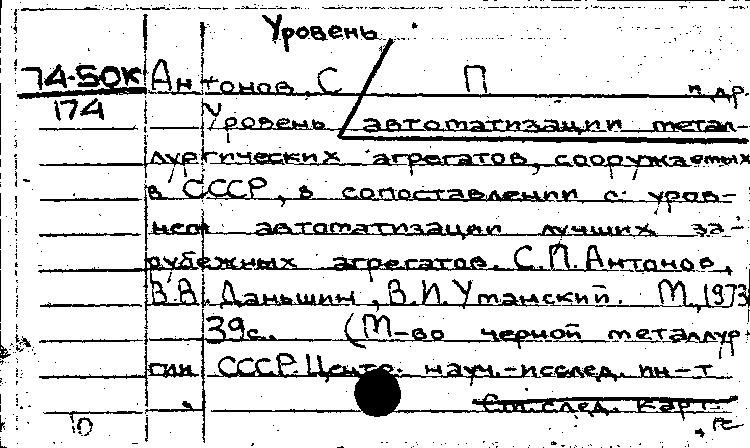 Уровень
74-50К Антонов, С П и др.
174 Уровень автоматизации метал-
лургических агрегатов, сооружаемых
в СССР, в сопоставлении с уров-
нем автоматизации лучших за-
рубежных агрегатов. С.П.Антонов,
В.В. Даньшин, В.И.Уманский. М.,1973
39с. (М-во черной металлур-
гии СССР. Центр. науч.-исслед. ин-т
См. след. карт.
10